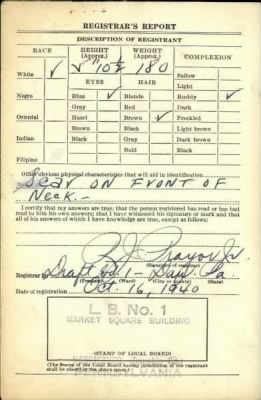 REGISTRAR'S REPORT
DESCRIPTION OF REGISTRANT
RACE HEIGHT (Approx.) WEIGHT (Approx.) COMPLEXION
White ✓ 10½ 180 Sallow
EYES HAIR Light
Negro Blue ✓ Blonde Ruddy ✓
Gray Red Dark
Oriental Hazel Brown ✓ Freckled
Brown Black Light brown
Indian Black Gray Dark brown
Bald Black
Filipino
Other obvious physical characteristics that will aid in identification
Scar on Front of
Neck.-
I certify that my answers are true; that the person registered has read or has had
read to him his own answers; that I have witnessed his signature or mark and that
all of his answers of which I have knowledge are true, except as follows:
Pryor Jr.
(Signature of registrar)
Registrar for Draft 1 - Pa.
(Precinct) (Ward) (City or county) (State)
Date of registration Oct. 16, 1940
L. B. No. 1
MARKET SQUARE BUILDING
(STAMP OF LOCAL BOARD)
(The Stamp of the Local Board having jurisdiction of the registrant
shall be placed in the above space.)
PENNSYLVANIA